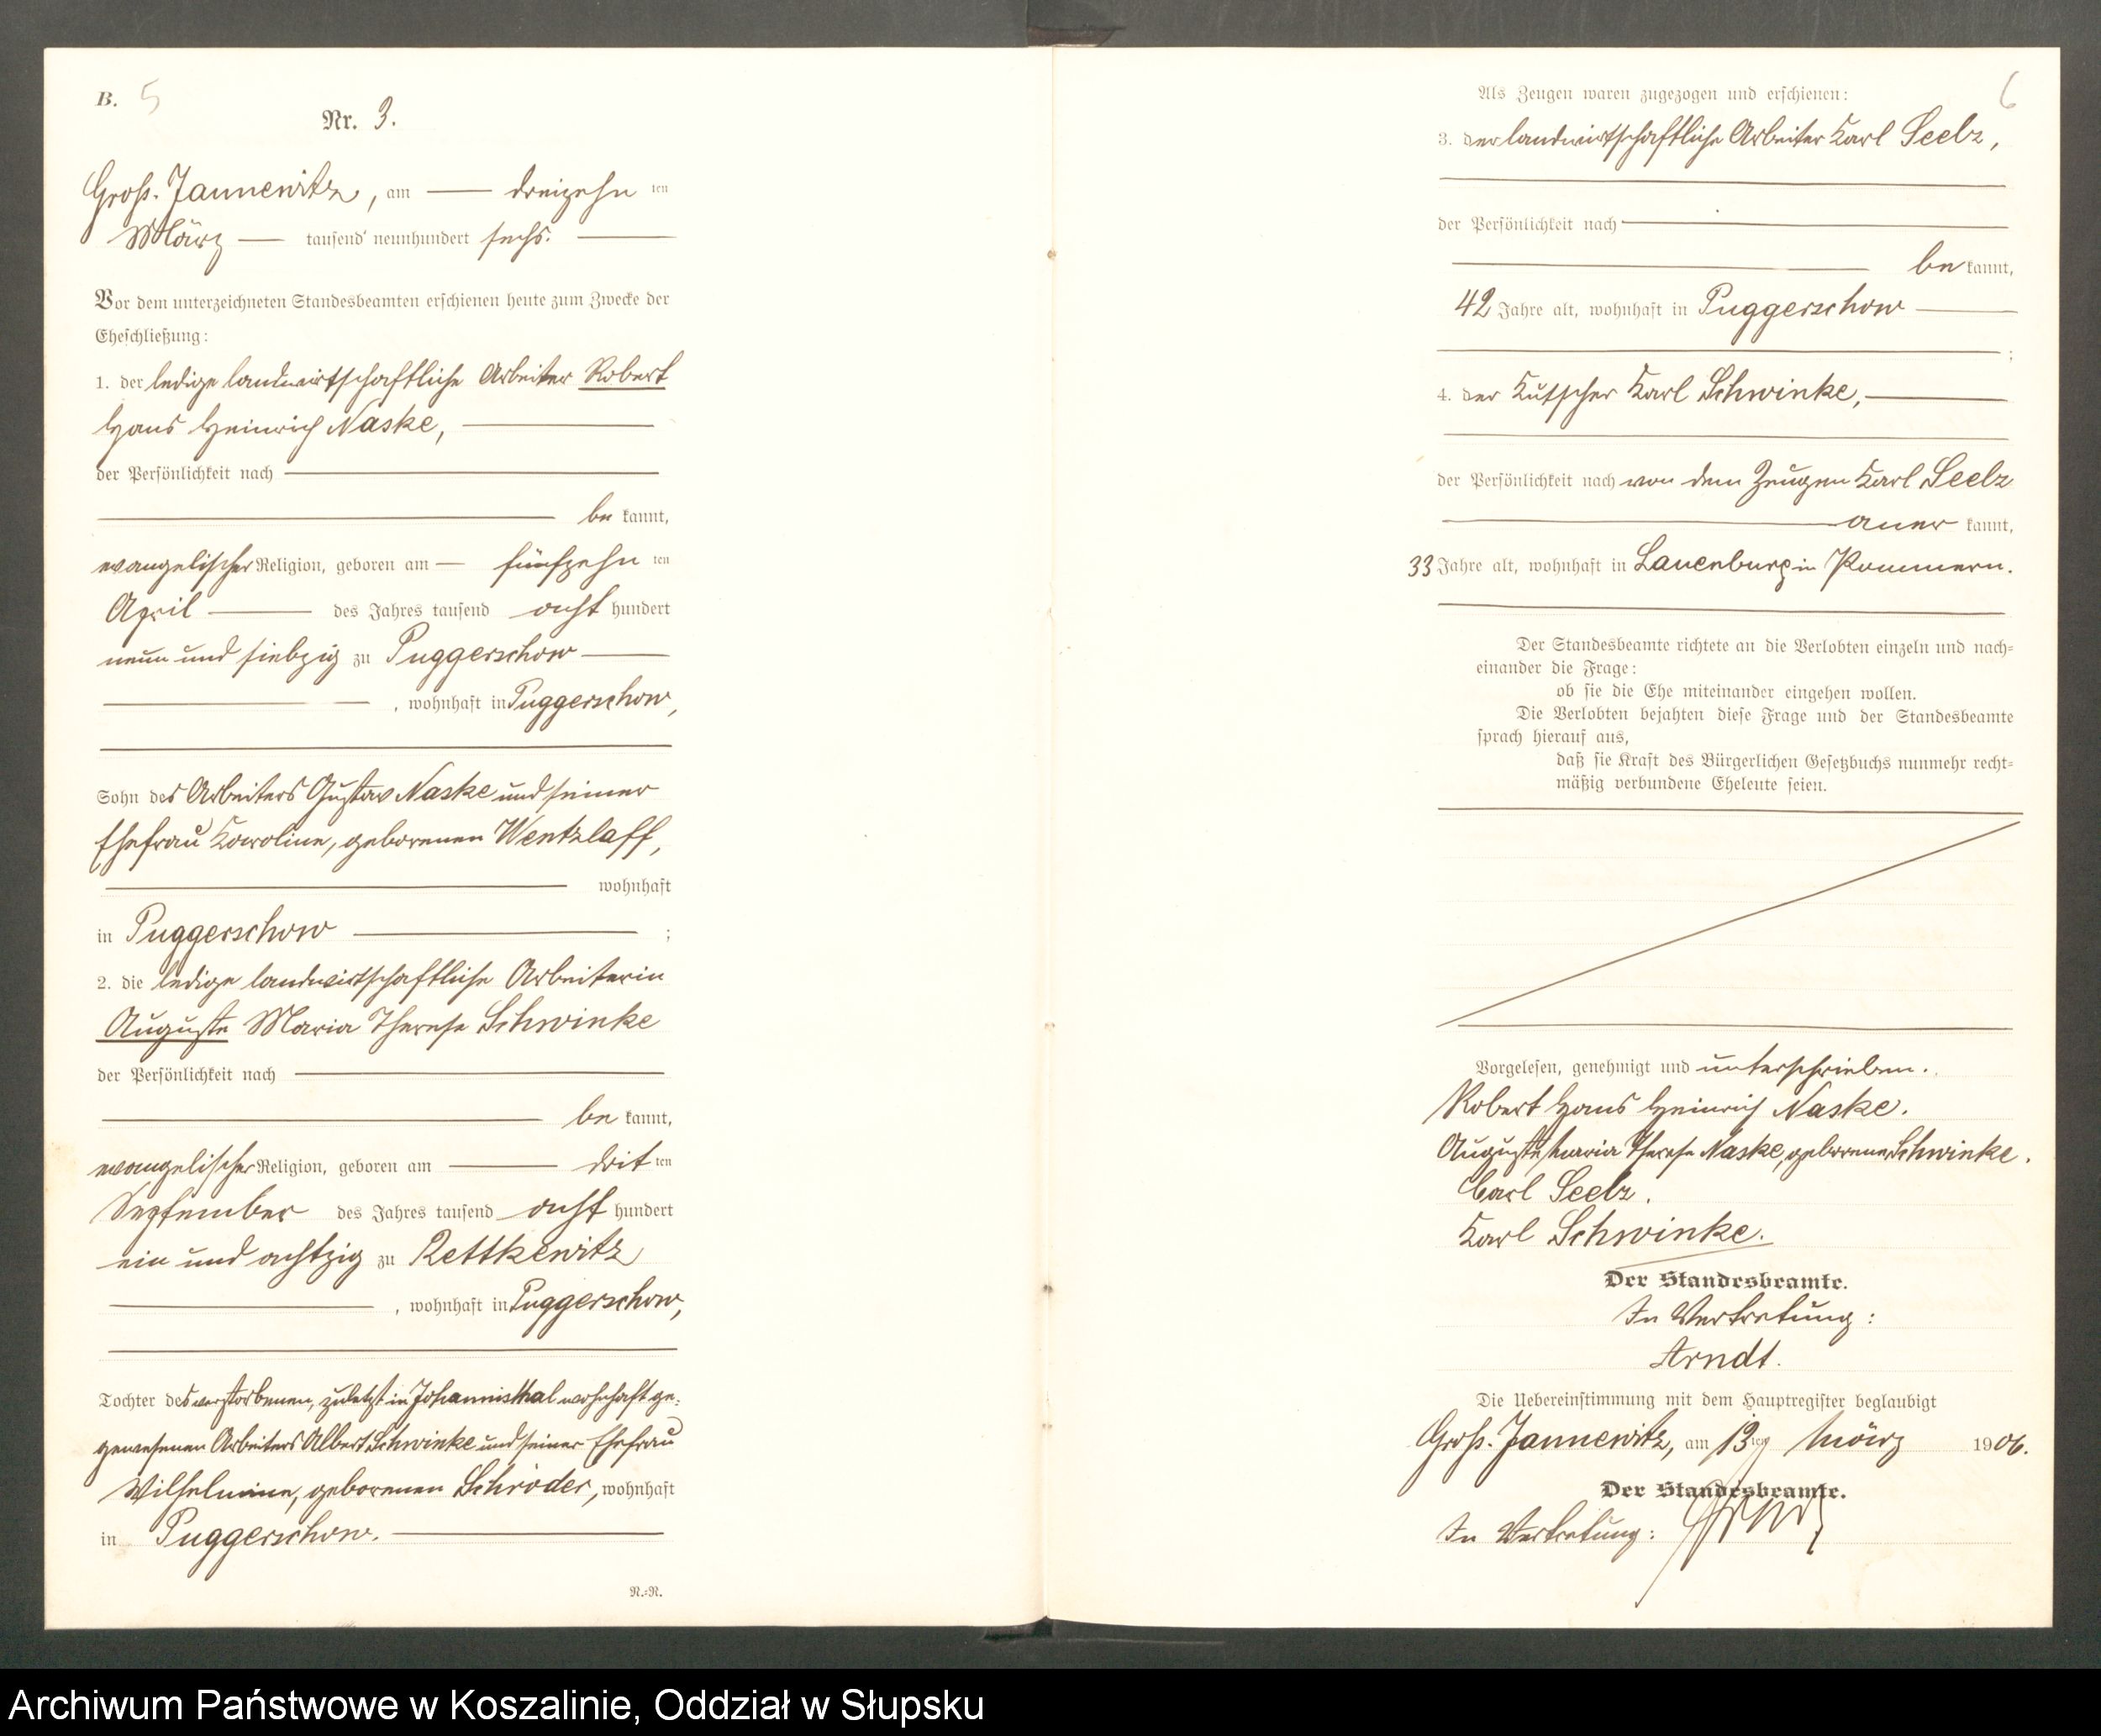 B. 5
Nr. 3.
Groß-Jannewitz, am dreizehn ten
März tausend neunhundert sechs.
Vor dem unterzeichneten Standesbeamten erschienen heute zum Zwecke der
Eheschließung:
1. der ledige landwirtschaftliche Arbeiter Robert
Hans Heinrich Naske,
der Persönlichkeit nach
be kannt,
evangelischer Religion, geboren am fünfzehn ten
April des Jahres tausend acht hundert
neun und siebzig zu Puggerschow
, wohnhaft in Puggerschow,
Sohn des Arbeiters Gustav Naske und seiner
Ehefrau Karoline, geborenen Wentzlaff,
wohnhaft
in Puggerschow ;
2. die ledige landwirtschaftliche Arbeiterin
Auguste Maria Therese Schwinke
der Persönlichkeit nach
be kannt,
evangelischer Religion, geboren am drit ten
September des Jahres tausend acht hundert
ein und achtzig zu Rettkewitz
, wohnhaft in Puggerschow,
Tochter des verstorbenen, zuletzt in Johannisthal wohnhaft ge-
gewesenen Arbeiters Albert Schwinke und seiner Ehefrau
Wilhelmine, geborenen Schröder, wohnhaft
in Puggerschow.
N.=N.
6
Als Zeugen waren zugezogen und erschienen:
3. der landwirtschaftliche Arbeiter Karl Seelz,
der Persönlichkeit nach
be kannt,
42 Jahre alt, wohnhaft in Puggerschow
;
4. der Kutscher Karl Schwinke,
der Persönlichkeit nach von dem Zeugen Karl Seelz
aner kannt,
33 Jahre alt, wohnhaft in Lauenburg in Pommern.
Der Standesbeamte richtete an die Verlobten einzeln und nach=
einander die Frage:
ob sie die Ehe miteinander eingehen wollen.
Die Verlobten bejahten diese Frage und der Standesbeamte
sprach hierauf aus,
daß sie Kraft des Bürgerlichen Gesetzbuchs nunmehr recht=
mäßig verbundene Eheleute seien.
Vorgelesen, genehmigt und unterschrieben.
Robert Hans Heinrich Naske.
Auguste Maria Therese Naske, geborene Schwinke.
Carl Seelz.
Karl Schwinke.
Der Standesbeamte.
In Vertretung:
Arndt.
Die Uebereinstimmung mit dem Hauptregister beglaubigt
Groß-Jannewitz, am 13 ten März 1906.
Der Standesbeamte.
In Vertretung: Arndt
Archiwum Państwowe w Koszalinie, Oddział w Słupsku